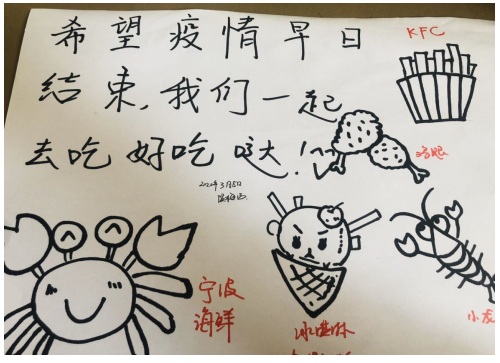 希望疫情早日
KFC
结束,我们一起
去吃好吃哒!
鸡腿
2022年3月5日
宁波
海鲜
冰淇淋
小龙